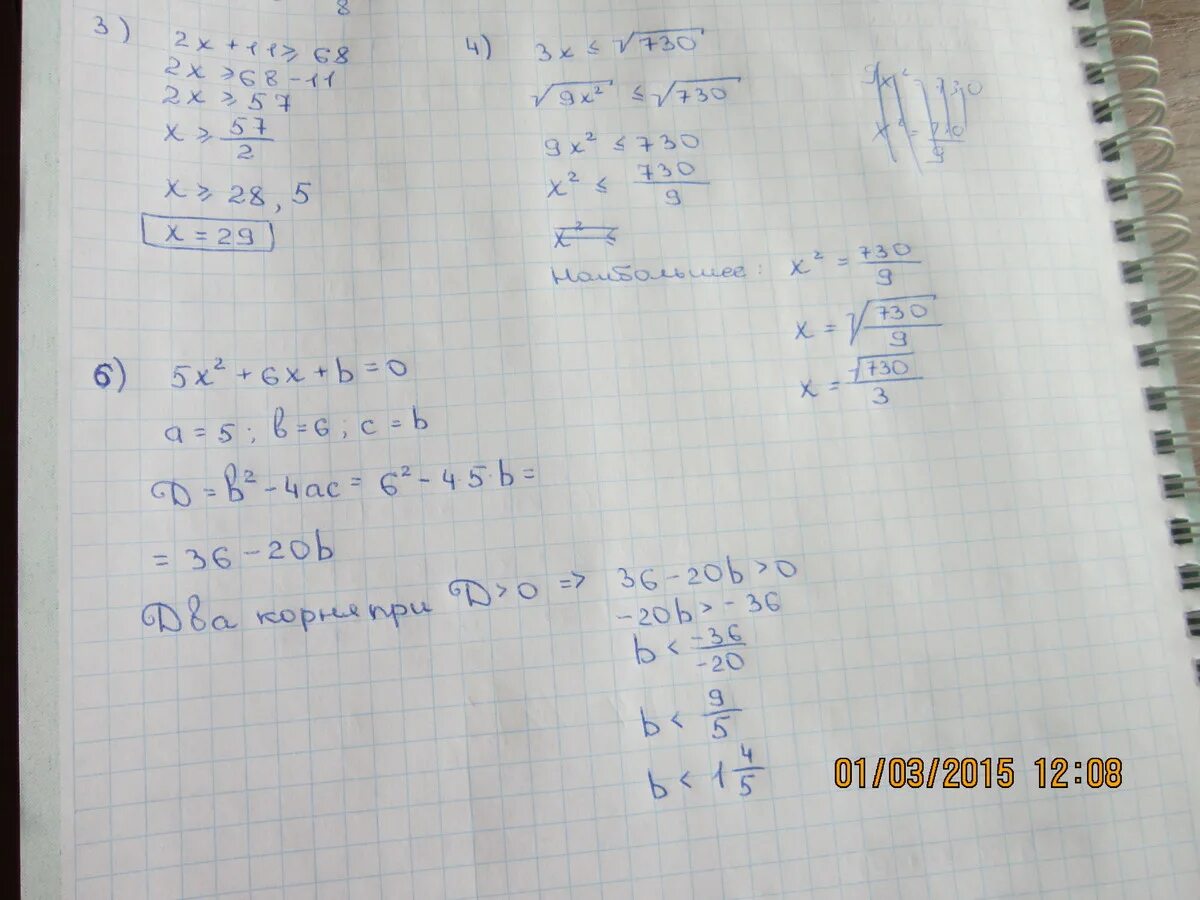 8
3)
2x + 11 ≥ 68
2x ≥ 68 - 11
2x ≥ 57
x ≥ 57/2
x ≥ 28,5
x = 29
4)
3x ≤ √730
√9x² ≤ √730
9x² ≤ 730
x² ≤ 730/9
x² ≤
Наибольшее: x² = 730/9
x = √(730/9)
x = √730/3
6)
5x² + 6x + b = 0
a = 5; в = 6; c = b
D = в² - 4ac = 6² - 4·5·b =
= 36 - 20b
Два корня при D > 0 => 36 - 20b > 0
-20b > -36
b < -36/-20
b < 9/5
b < 1 4/5
01/03/2015 12:08